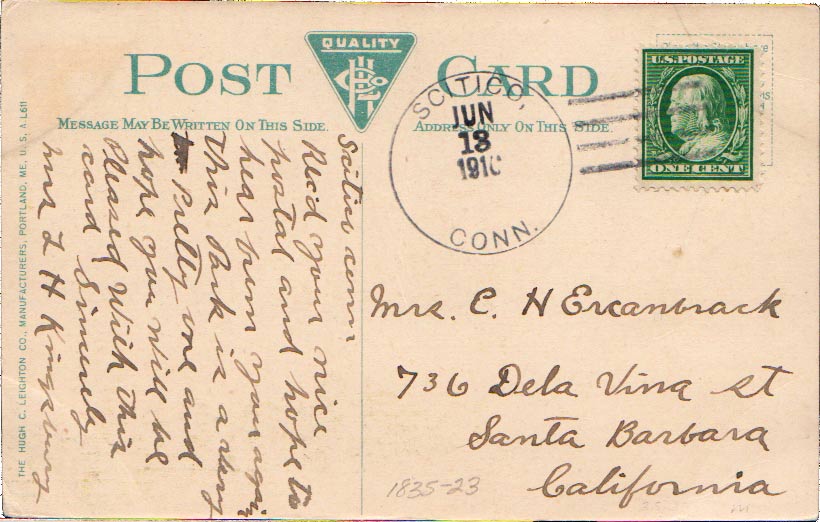 POST CARD
QUALITY
MESSAGE MAY BE WRITTEN ON THIS SIDE.
ADDRESS ONLY ON THIS SIDE.
U.S. POSTAGE
ONE CENT
SCITICO,
JUN
13
1910
CONN.
Scitico conn
Rec'd your nice
postal and hope to
hear from you again
This Park is a very
Pretty one and
hope you will be
Pleased With this
card Sincerely
Mrs L H Kingsbury
Mrs. C. H Ercanbrack
736 Dela Vina st
Santa Barbara
California
1835-23
THE HUGH C. LEIGHTON CO., MANUFACTURERS, PORTLAND, ME., U.S.A. L611